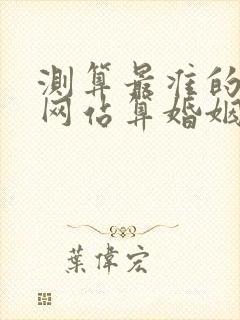 測算最准的
网占算婚姻
葉偉宏